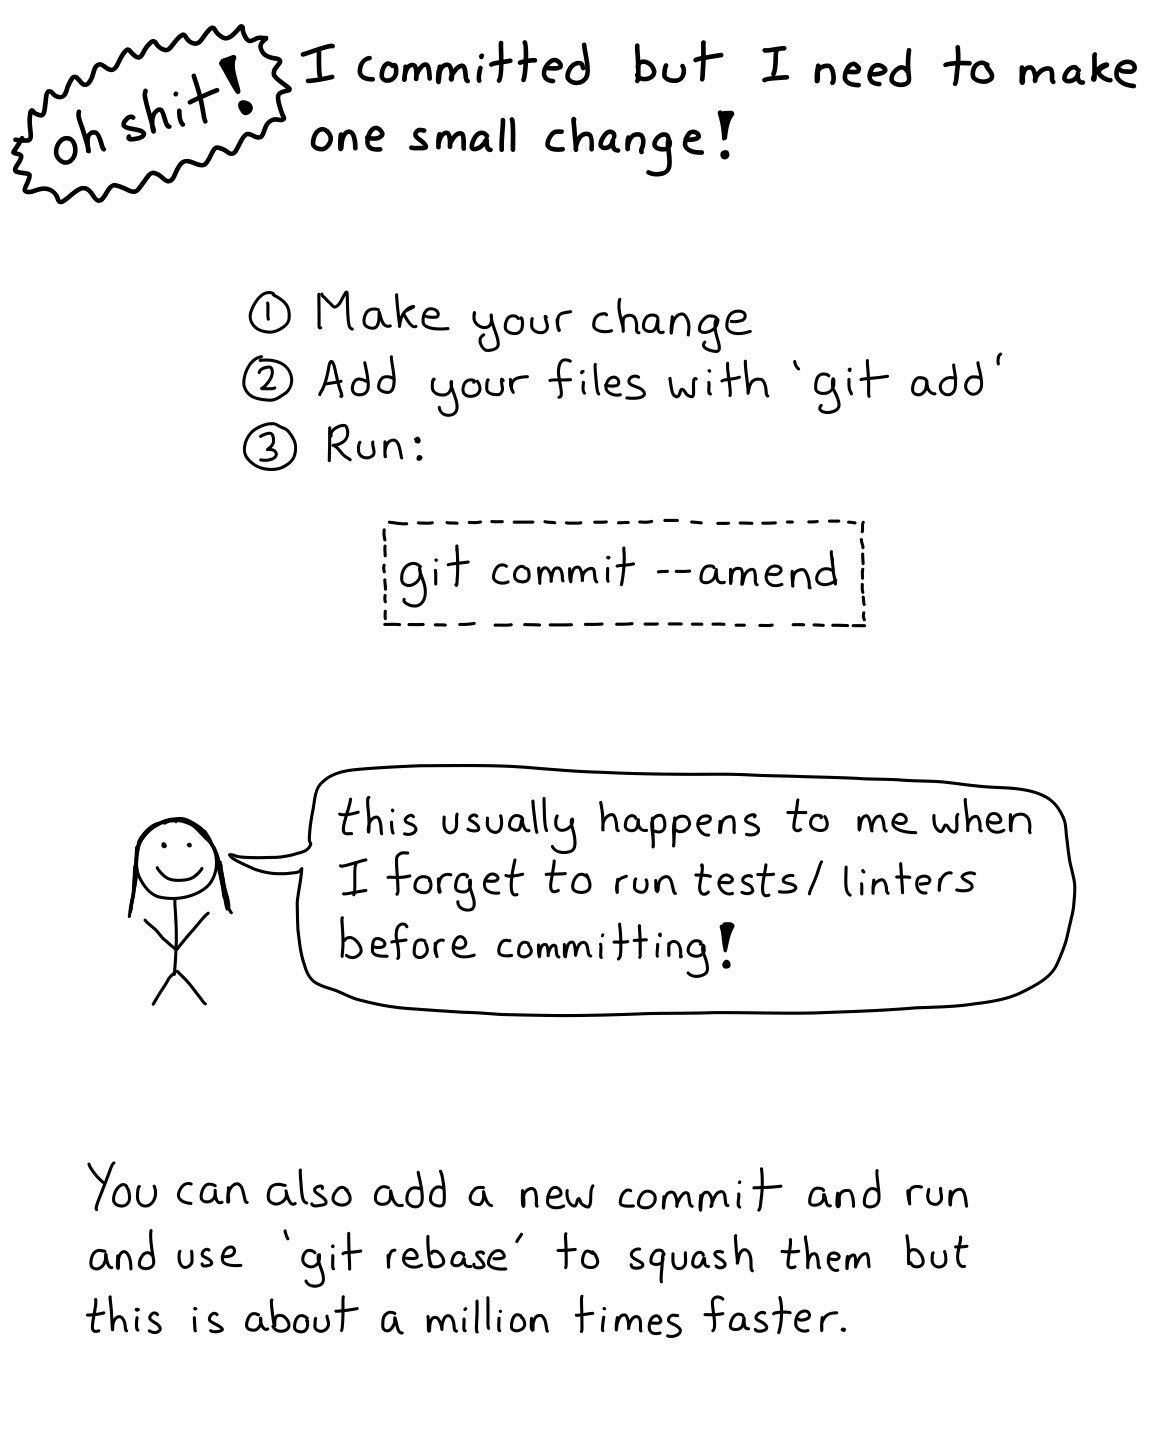 oh shit!
I committed but I need to make
one small change!
① Make your change
② Add your files with `git add'
③ Run:
git commit --amend
this usually happens to me when
I forget to run tests/ linters
before committing!
You can also add a new commit and run
and use `git rebase' to squash them but
this is about a million times faster.